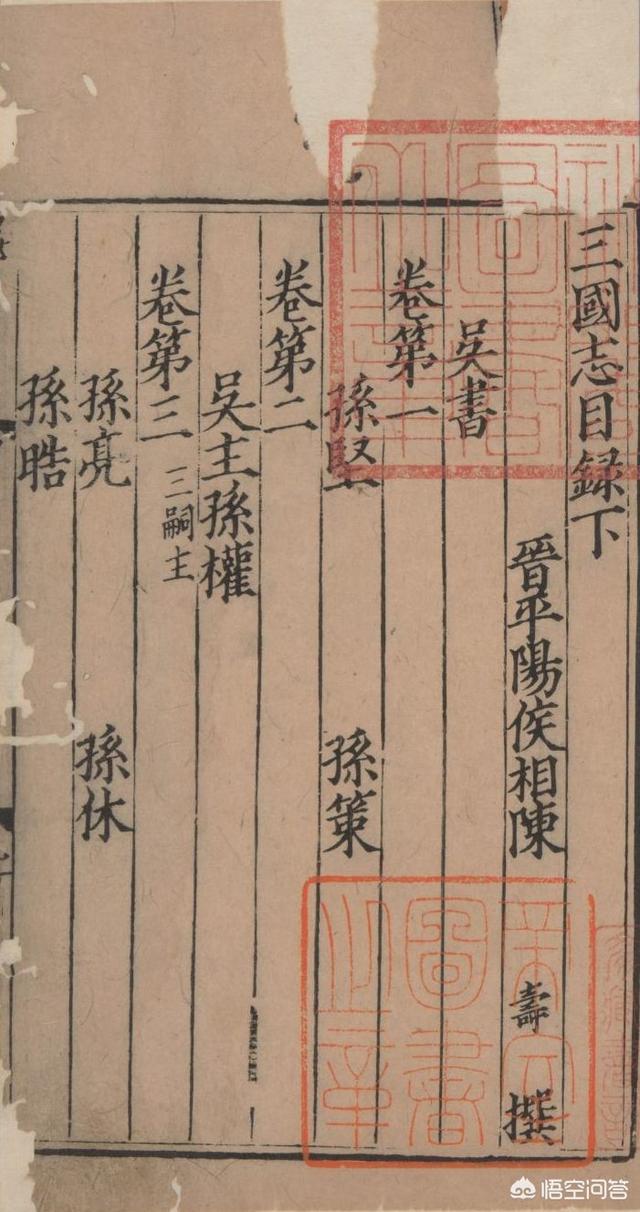 三國志目録下
晉平陽侯相陳 壽 撰
吳書
卷第一
孫堅 孫策
卷第二
吳主孫權
卷第三 三嗣主
孫亮 孫休
孫晧
悟空问答